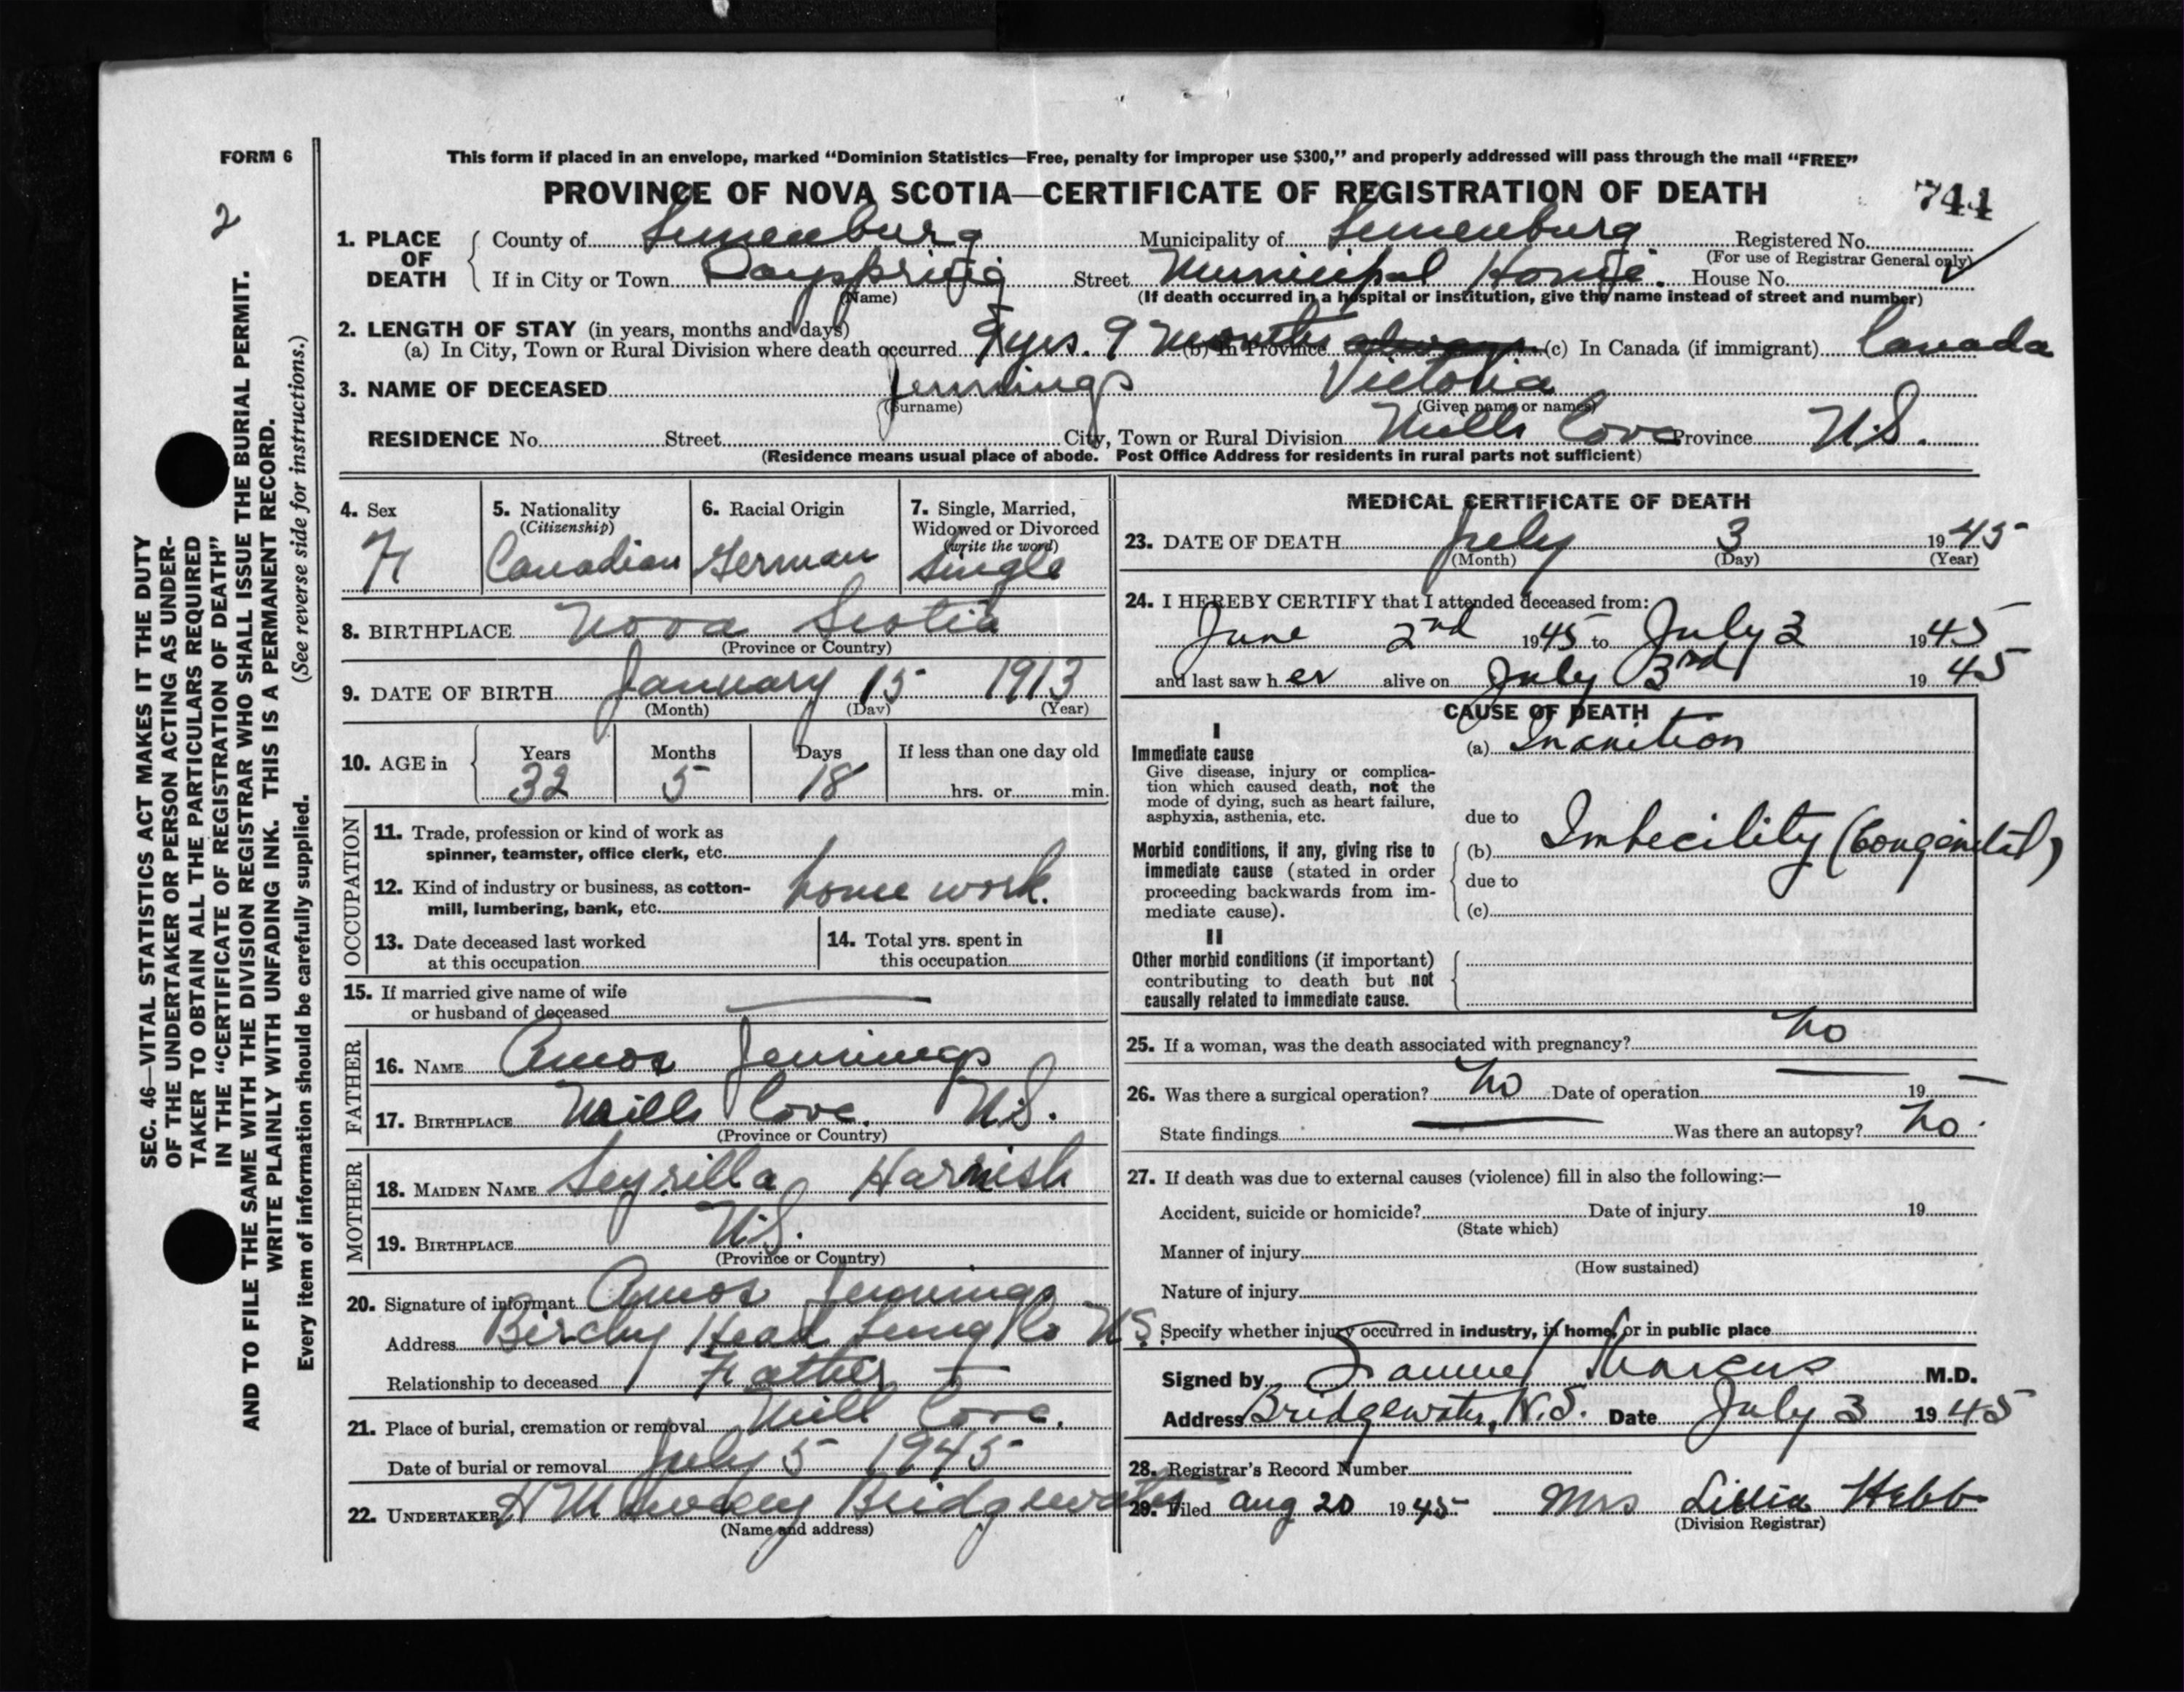 FORM 6
2
This form if placed in an envelope, marked “Dominion Statistics—Free, penalty for improper use $300,” and properly addressed will pass through the mail “FREE”
PROVINCE OF NOVA SCOTIA—CERTIFICATE OF REGISTRATION OF DEATH 744
1. PLACE OF DEATH
County of Lunenburg Municipality of Lunenburg Registered No.
(For use of Registrar General only)
If in City or Town Dayspring Street Municipal Home. House No.
(Name) (If death occurred in a hospital or institution, give the name instead of street and number)
2. LENGTH OF STAY (in years, months and days)
(a) In City, Town or Rural Division where death occurred 9 yrs. 9 months (b) In Province always (c) In Canada (if immigrant) Canada
3. NAME OF DECEASED Jennings Victoria
(Surname) (Given name or names)
RESIDENCE No. Street City, Town or Rural Division Mills Cove Province N.S.
(Residence means usual place of abode. Post Office Address for residents in rural parts not sufficient)
4. Sex
F
5. Nationality
(Citizenship)
Canadian
6. Racial Origin
German
7. Single, Married,
Widowed or Divorced
(write the word)
Single
8. BIRTHPLACE Nova Scotia
(Province or Country)
9. DATE OF BIRTH January 15 1913
(Month) (Day) (Year)
10. AGE in
Years Months Days If less than one day old
32 5 18 hrs. or min.
OCCUPATION
11. Trade, profession or kind of work as
spinner, teamster, office clerk, etc.
12. Kind of industry or business, as cotton-
mill, lumbering, bank, etc. home work.
13. Date deceased last worked
at this occupation
14. Total yrs. spent in
this occupation
15. If married give name of wife
or husband of deceased
FATHER
16. NAME Amos Jennings
17. BIRTHPLACE Mills Cove. N.S.
(Province or Country)
MOTHER
18. MAIDEN NAME Seyrilla Harnish
19. BIRTHPLACE N.S.
(Province or Country)
20. Signature of informant Amos Jennings
Address Birchy Head Lung Co N S
Relationship to deceased Father
21. Place of burial, cremation or removal Mill Cove.
Date of burial or removal July 5 1945
22. UNDERTAKER H M Bridgewater
(Name and address)
MEDICAL CERTIFICATE OF DEATH
23. DATE OF DEATH July 3 1945
(Month) (Day) (Year)
24. I HEREBY CERTIFY that I attended deceased from:
June 2nd 1945 to July 3 1945
and last saw her alive on July 3rd 1945
CAUSE OF DEATH
I
Immediate cause
Give disease, injury or complica-
tion which caused death, not the
mode of dying, such as heart failure,
asphyxia, asthenia, etc.
(a) Inanition
due to
Morbid conditions, if any, giving rise to
immediate cause (stated in order
proceeding backwards from im-
mediate cause).
(b) Imbecility (Congenital)
due to
(c)
II
Other morbid conditions (if important)
contributing to death but not
causally related to immediate cause.
25. If a woman, was the death associated with pregnancy? no
26. Was there a surgical operation? no Date of operation 19
State findings Was there an autopsy? no.
27. If death was due to external causes (violence) fill in also the following:—
Accident, suicide or homicide? Date of injury 19
(State which)
Manner of injury
(How sustained)
Nature of injury
Specify whether injury occurred in industry, in home, or in public place
Signed by Samuel Marcus M.D.
Address Bridgewater, N.S. Date July 3 1945
28. Registrar's Record Number
29. Filed Aug 20 1945 Mrs Lillia Hebb
(Division Registrar)
SEC. 46—VITAL STATISTICS ACT MAKES IT THE DUTY
OF THE UNDERTAKER OR PERSON ACTING AS UNDER-
TAKER TO OBTAIN ALL THE PARTICULARS REQUIRED
IN THE “CERTIFICATE OF REGISTRATION OF DEATH”
AND TO FILE THE SAME WITH THE DIVISION REGISTRAR WHO SHALL ISSUE THE BURIAL PERMIT.
WRITE PLAINLY WITH UNFADING INK. THIS IS A PERMANENT RECORD.
Every item of information should be carefully supplied. (See reverse side for instructions.)